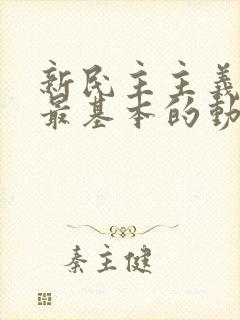 新民主主義
最基本的動
秦主健